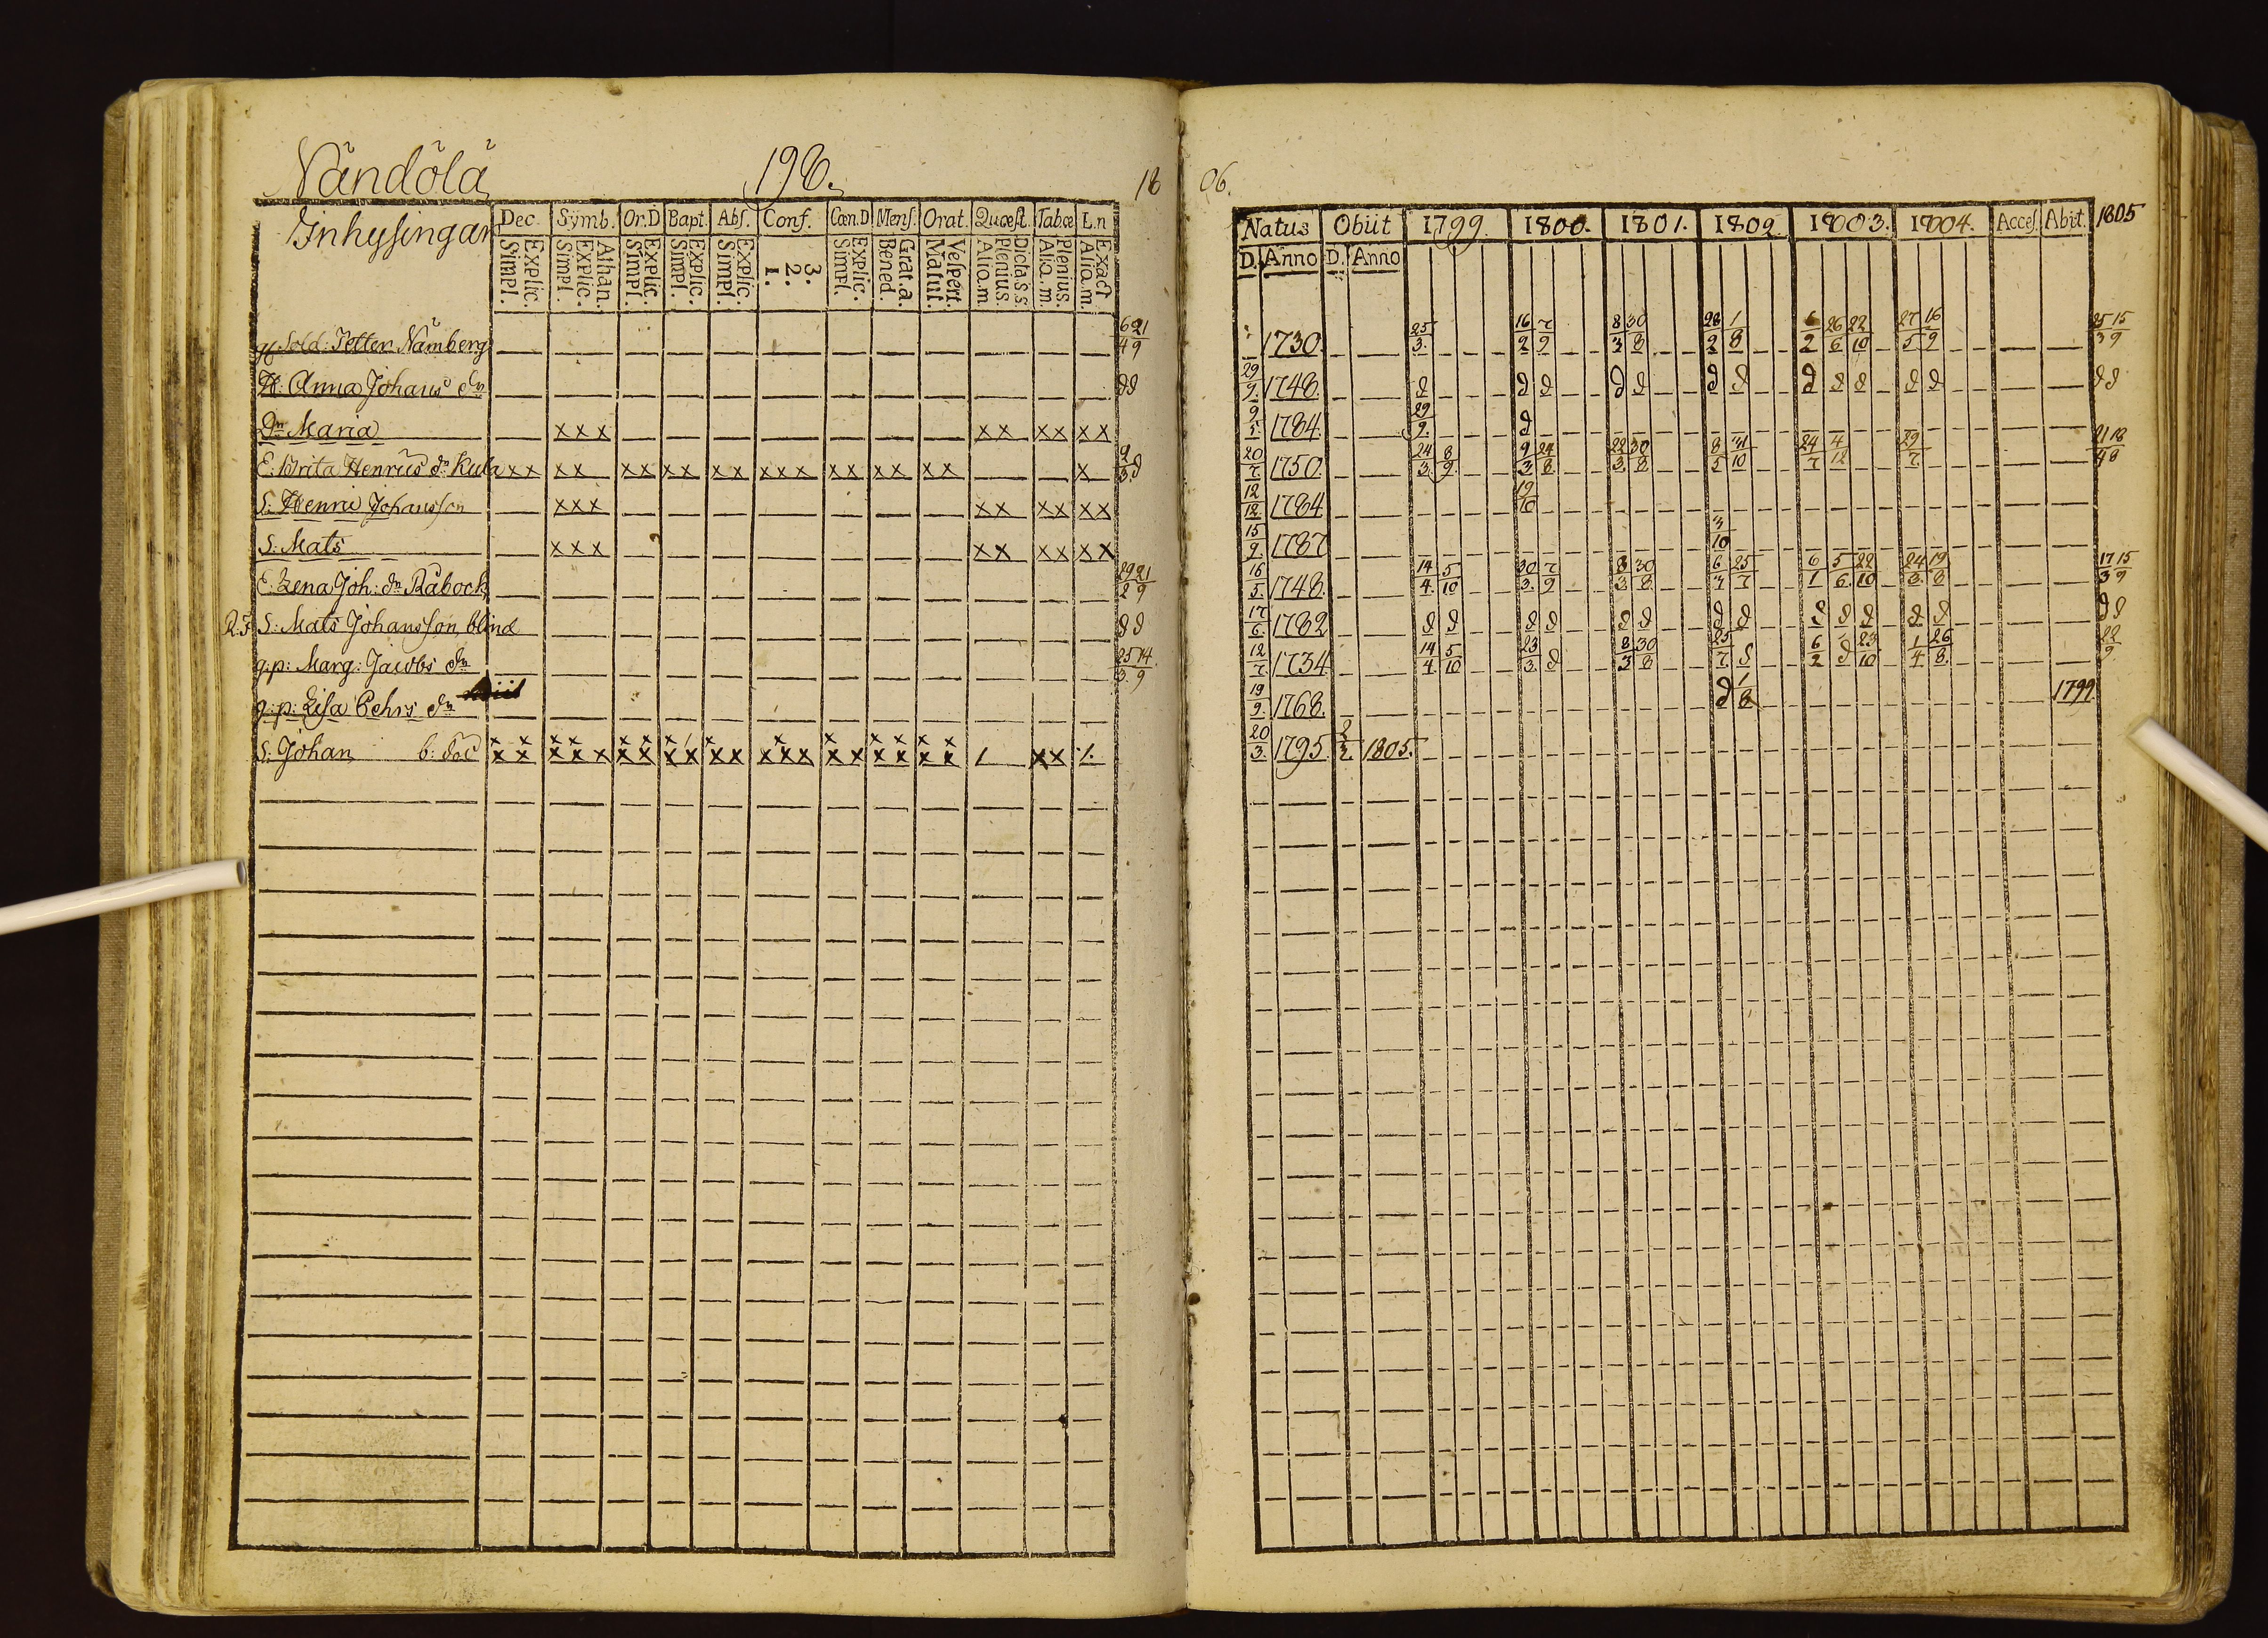 Nändölä 198. 18 06.
Inhysingar Dec. Symb. Or.D Bapt. Abs. Conf. Cœn.D Mens. Orat. Quæst. Tab.œ L.n
Simpl. Explic. Simpl. Explic. Athan. Simpl. Explic. Simpl. Explic. Simpl. Explic. 1. 2. 3. Simpl. Explic. Bened. Grat.a. Matut. Vespert. Aliq.m. Plenius. Dicta s.s. Aliq.m. Plenius. Aliq.m. Exact
Natus Obiit 1799. 1800. 1801. 1802. 1803. 1804. Acces. Abit. 1805
D. Anno D. Anno
Sold: Petter Nämberg 6 21 1730. 25 16 7 8 30 28 1 6 26 22 27 16 25 15
4 9 3. 2 9 3 8 2 8 2 6 10 5 9 3 9
H: Anna Johans dr d d 29 1748. d d d d d d d d d d d d d d d
9.
Dr Maria x x x x x x x x x 9 1784. 29 d
5. 9.
E: Brita Henrics dr Kula x x x x x x x x x x x x x x x x x x x x 2 d 20 1750. 24 8 9 24 22 30 8 31 24 4 29 21 18
3. 7 3. 9. 3 8 3 8 5 10 7 12 7 4 8
S: Henric Johansson x x x x x x x x x 12 1784 19
12 10
S: Mats x x x x x x x x x 15 1787 3
9. 10
E: Lena Joh: dr Råbock 29 21 16 1748. 14 5 30 7 8 30 6 25 6 5 22 24 19 17 15
2 9 5. 4 10 3. 9 3 8 7 7 1 6. 10 3. 8 3 9
S: Mats Johansson, blind d d 17 1782 d d d d d d d d d d d d d d d
6.
g:p: Marg: Jacobs dr 25 14. 12 1734 14 5 23 d 8 30 25 d 6 d 23 1 26 22
3 9 7 4 10 3. 3 8 7 2 10 4 8. 9
g:p: Lisa Pehrs dr 19 1768. d 1 1799
9. 8
S: Johan x x x x x x x x x x x x x x x x x x x x x x x x x x x x x x x x x x x 20 1795. 2 1805.
3.